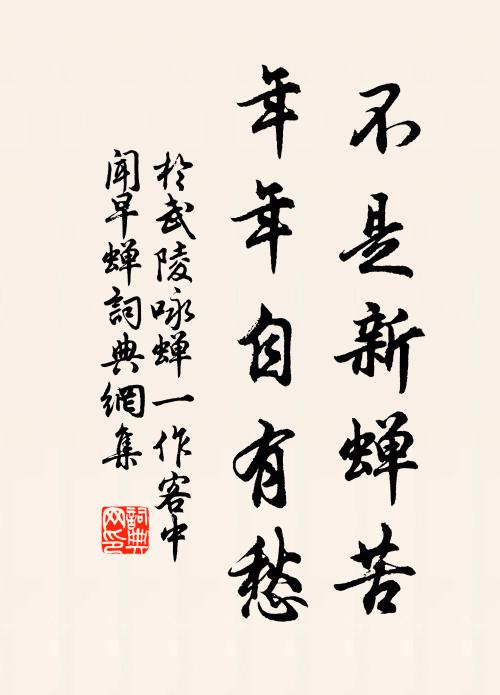 不是新蝉苦
年年自有愁
於武陵咏蝉一作客中
闻早蝉詞典網集
詞典网印